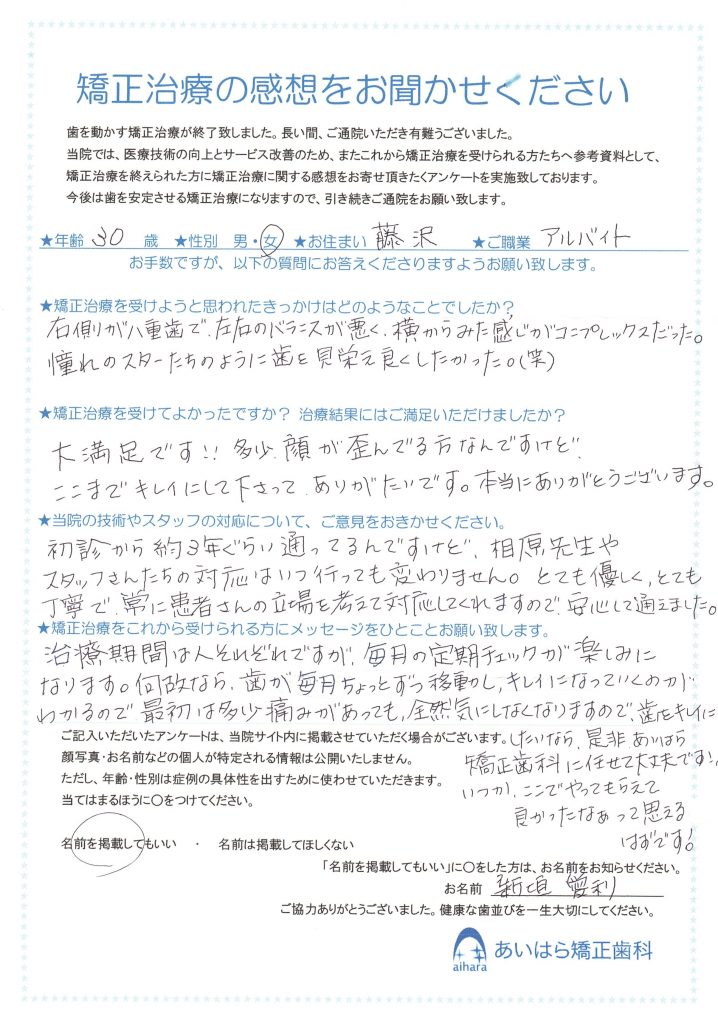 矯正治療の感想をお聞かせください
歯を動かす矯正治療が終了致しました。長い間、ご通院いただき有難うございました。
当院では、医療技術の向上とサービス改善のため、またこれから矯正治療を受けられる方たちへ参考資料として、
矯正治療を終えられた方に矯正治療に関する感想をお寄せ頂きたくアンケートを実施致しております。
今後は歯を安定させる矯正治療になりますので、引き続きご通院をお願い致します。
★年齢 30 歳 ★性別 男・女 ★お住まい 藤沢 ★ご職業 アルバイト
お手数ですが、以下の質問にお答えくださりますようお願い致します。
★矯正治療を受けようと思われたきっかけはどのようなことでしたか？
右側が八重歯で、左右のバランスが悪く、横からみた感じがコンプレックスだった。
憧れのスターたちのように歯を見栄え良くしたかった。(笑)
★矯正治療を受けてよかったですか？ 治療結果にはご満足いただけましたか？
大満足です!! 多少、顔が歪んでる方なんですけど、
ここまでキレイにして下さって、ありがたいです。本当にありがとうございます。
★当院の技術やスタッフの対応について、ご意見をおきかせください。
初診から約3年ぐらい通ってるんですけど、相原先生や
スタッフさんたちの対応はいつ行っても変わりません。とても優しく、とても
丁寧で、常に患者さんの立場を考えて対応してくれますので、安心して通えました。
★矯正治療をこれから受けられる方にメッセージをひとことお願い致します。
治療期間は人それぞれですが、毎月の定期チェックが楽しみに
なります。何故なら、歯が毎月ちょっとずつ移動し、キレイになっていくのが
わかるので、最初は多少痛みがあっても、全然気にしなくなりますので、歯をキレイに
したいなら、是非あいはら
矯正歯科に任せて大丈夫です!!
いつか、ここでやってもらえて
良かったなぁって思える
はずです!
ご記入いただいたアンケートは、当院サイト内に掲載させていただく場合がございます。
顔写真・お名前などの個人が特定される情報は公開いたしません。
ただし、年齢・性別は症例の具体性を出すために使わせていただきます。
当てはまるほうに○をつけてください。
名前を掲載してもいい ・ 名前は掲載してほしくない
「名前を掲載してもいい」に○をした方は、お名前をお知らせください。
お名前 新垣 愛利
ご協力ありがとうございました。健康な歯並びを一生大切にしてください。
aihara あいはら矯正歯科